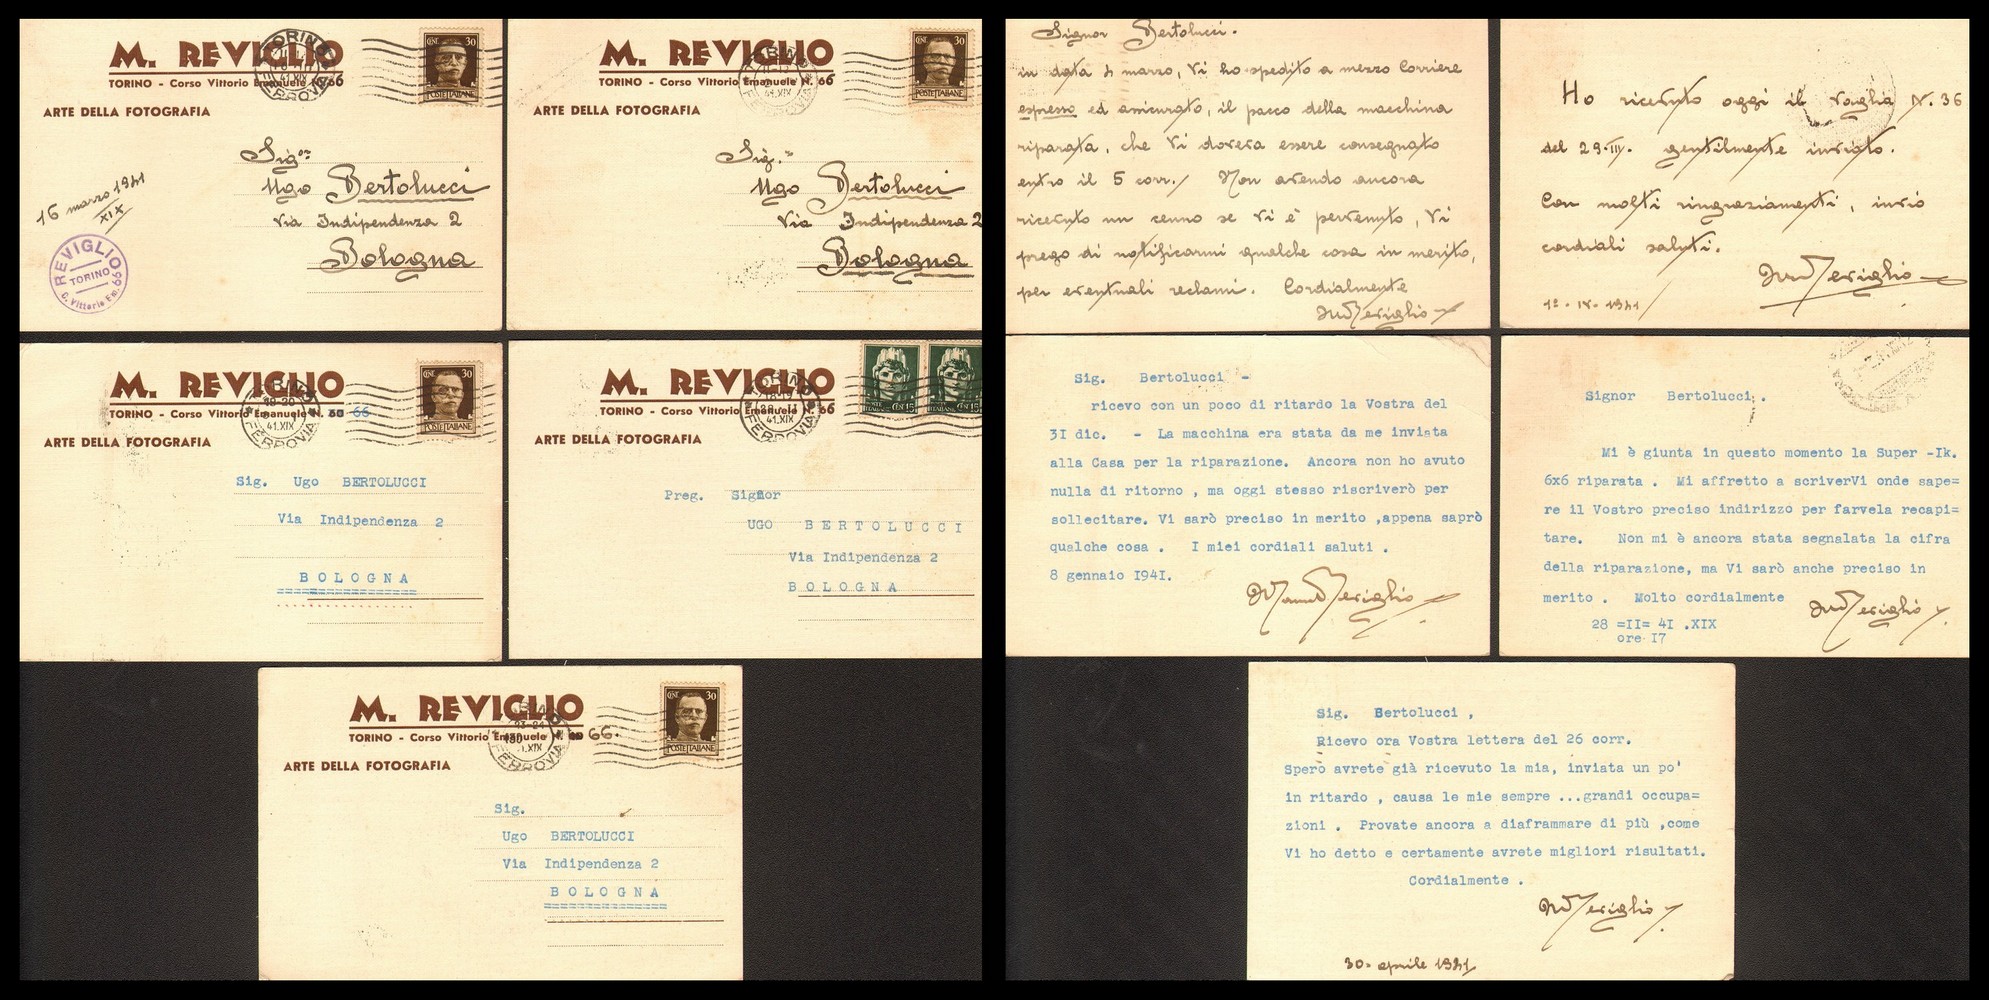 M. REVIGLIO
TORINO - Corso Vittorio Emanuele N. 66
ARTE DELLA FOTOGRAFIA
TORINO
41.XIX
FERROVIA
CENT. 30
POSTE ITALIANE
Sigor
Ugo Bertolucci
Via Indipendenza 2
Bologna
16 marzo 1941
XIX
REVIGLIO
TORINO
C. Vittorio Em. 66
M. REVIGLIO
TORINO - Corso Vittorio Emanuele N. 66
ARTE DELLA FOTOGRAFIA
41.XIX
30
POSTE ITALIANE
Sig.
Ugo Bertolucci
Via Indipendenza 2
Bologna
M. REVIGLIO
TORINO - Corso Vittorio Emanuele N. 66
ARTE DELLA FOTOGRAFIA
19-20
41.XIX
FERROVIA
30
POSTE ITALIANE
Sig. Ugo BERTOLUCCI
Via Indipendenza 2
BOLOGNA
M. REVIGLIO
TORINO - Corso Vittorio Emanuele N. 66
ARTE DELLA FOTOGRAFIA
41.XIX
FERROVIA
Preg. Signor
UGO BERTOLUCCI
Via Indipendenza 2
BOLOGNA
M. REVIGLIO
TORINO - Corso Vittorio Emanuele N. 66.
ARTE DELLA FOTOGRAFIA
23-24
FERROVIA
30
POSTE ITALIANE
Sig.
Ugo BERTOLUCCI
Via Indipendenza 2
BOLOGNA
Signor Bertolucci.
in data 4 marzo, Vi ho spedito a mezzo Corriere
espresso ed assicurato, il pacco della macchina
riparata, che Vi doveva essere consegnato
entro il 5 corr./ Non avendo ancora
ricevuto un cenno se Vi è pervenuto, Vi
prego di notificarmi qualche cosa in merito,
per eventuali reclami. Cordialmente
Reviglio
Ho ricevuto oggi il vaglia N. 36
del 29.III. gentilmente inviato.
Con molti ringraziamenti, invio
cordiali saluti.
Reviglio
1°-IV-1941
Sig. Bertolucci -
ricevo con un poco di ritardo la Vostra del
3I dic. - La macchina era stata da me inviata
alla Casa per la riparazione. Ancora non ho avuto
nulla di ritorno , ma oggi stesso riscriverò per
sollecitare. Vi sarò preciso in merito ,appena saprò
qualche cosa . I miei cordiali saluti .
8 gennaio I94I.
Reviglio
Signor Bertolucci .
Mi è giunta in questo momento la Super -Ik.
6x6 riparata . Mi affretto a scriverVi onde sape=
re il Vostro preciso indirizzo per farvela recapi=
tare. Non mi è ancora stata segnalata la cifra
della riparazione, ma Vi sarò anche preciso in
merito . Molto cordialmente
28 =II= 4I .XIX
ore I7
Reviglio
Sig. Bertolucci ,
Ricevo ora Vostra lettera del 26 corr.
Sperò avrete già ricevuto la mia, inviata un po'
in ritardo , causa le mie sempre ...grandi occupa=
zioni . Provate ancora a diaframmare di più ,come
Vi ho detto e certamente avrete migliori risultati.
Cordialmente .
Reviglio
30- aprile 1941